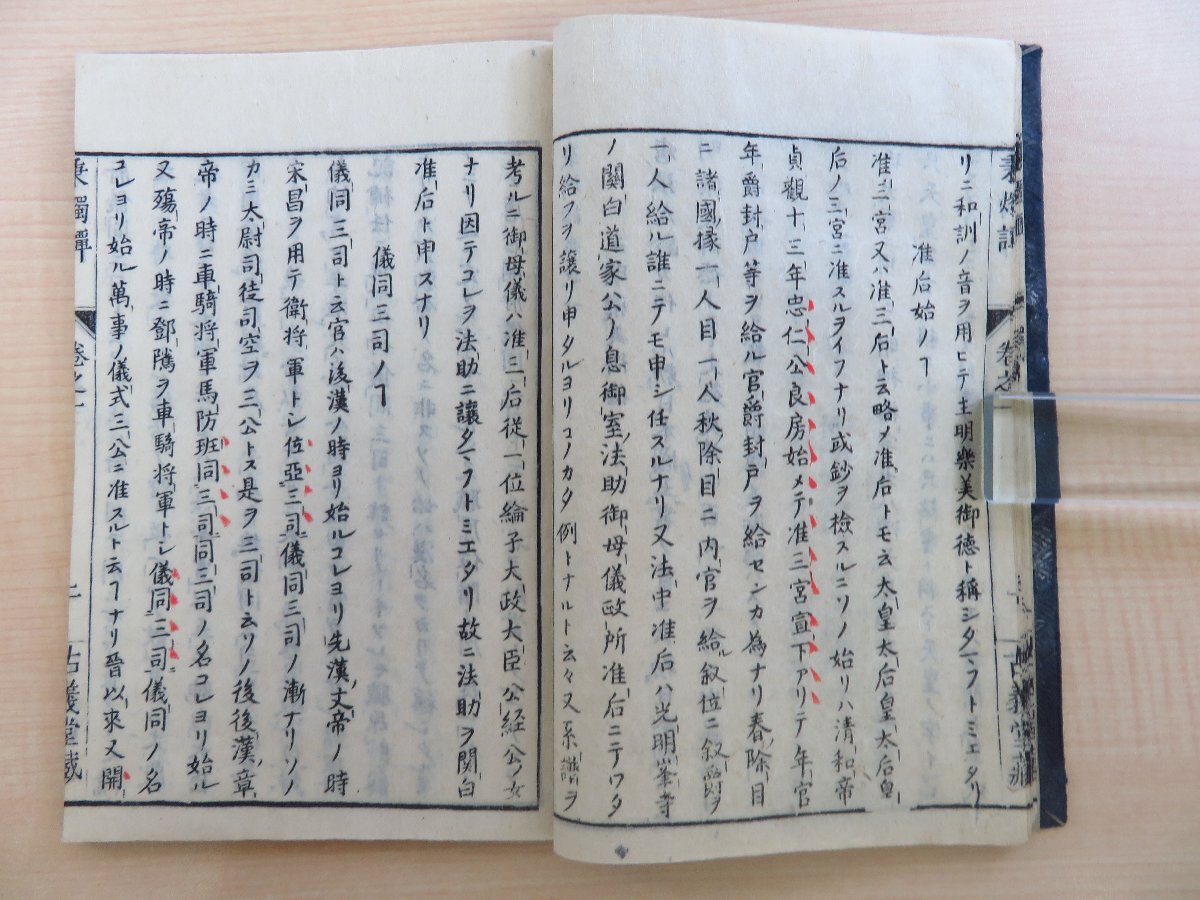 リニ和訓ノ音ヲ用ヒテ主明樂美御徳ト稱シタマフトミエタリ
准后始ノヿ
准三宮又ハ准三后ト云略メ准后トモ云太皇太后皇太后皇
后ノ三宮ニ准スルヲイフナリ或鈔ヲ検スルニソノ始リハ清和帝
貞觀十三年忠仁公良房始メテ准三宮宣下アリテ年官
年爵封戸等ヲ給ル官爵封戸ヲ給センカ為ナリ春除目
ニ諸國掾一人目一人秋除目ニ内官ヲ給叙位ニ叙爵ヲ
一人給ル誰ニテモ申シ任スルナリ又法中准后ハ光明峯寺
ノ関白道家公ノ息御室法助御母儀政所准后ニテワタ
リ給フヲ譲リ申タルヨリコノカタ例トナルト云々又系譜ヲ
考ルニ御母儀ハ准三后従一位綸子大政大臣公経公ノ女
ナリ因テコレヲ法助ニ讓タマフトミエタリ故ニ法助ヲ関白
准后ト申スナリ
儀同三司ノヿ
儀同三司ト云官ハ後漢ノ時ヨリ始ルコレヨリ先漢文帝ノ時
宋昌ヲ用テ衛将軍トシ位亞三司儀同三司ノ漸ナリソノ
カミ太尉司徒司空ヲ三公トス是ヲ三司ト云ソノ後後漢章
帝ノ時ニ車騎将軍馬防班同三司同三司ノ名コレヨリ始ル
又殤帝ノ時ニ鄧隲ヲ車騎将軍トシ儀同三司儀同ノ名
コレヨリ始ル萬事ノ儀式三公ニ准スルト云ヿナリ晉以来又開
秉燭譚 巻之一 古義堂蔵